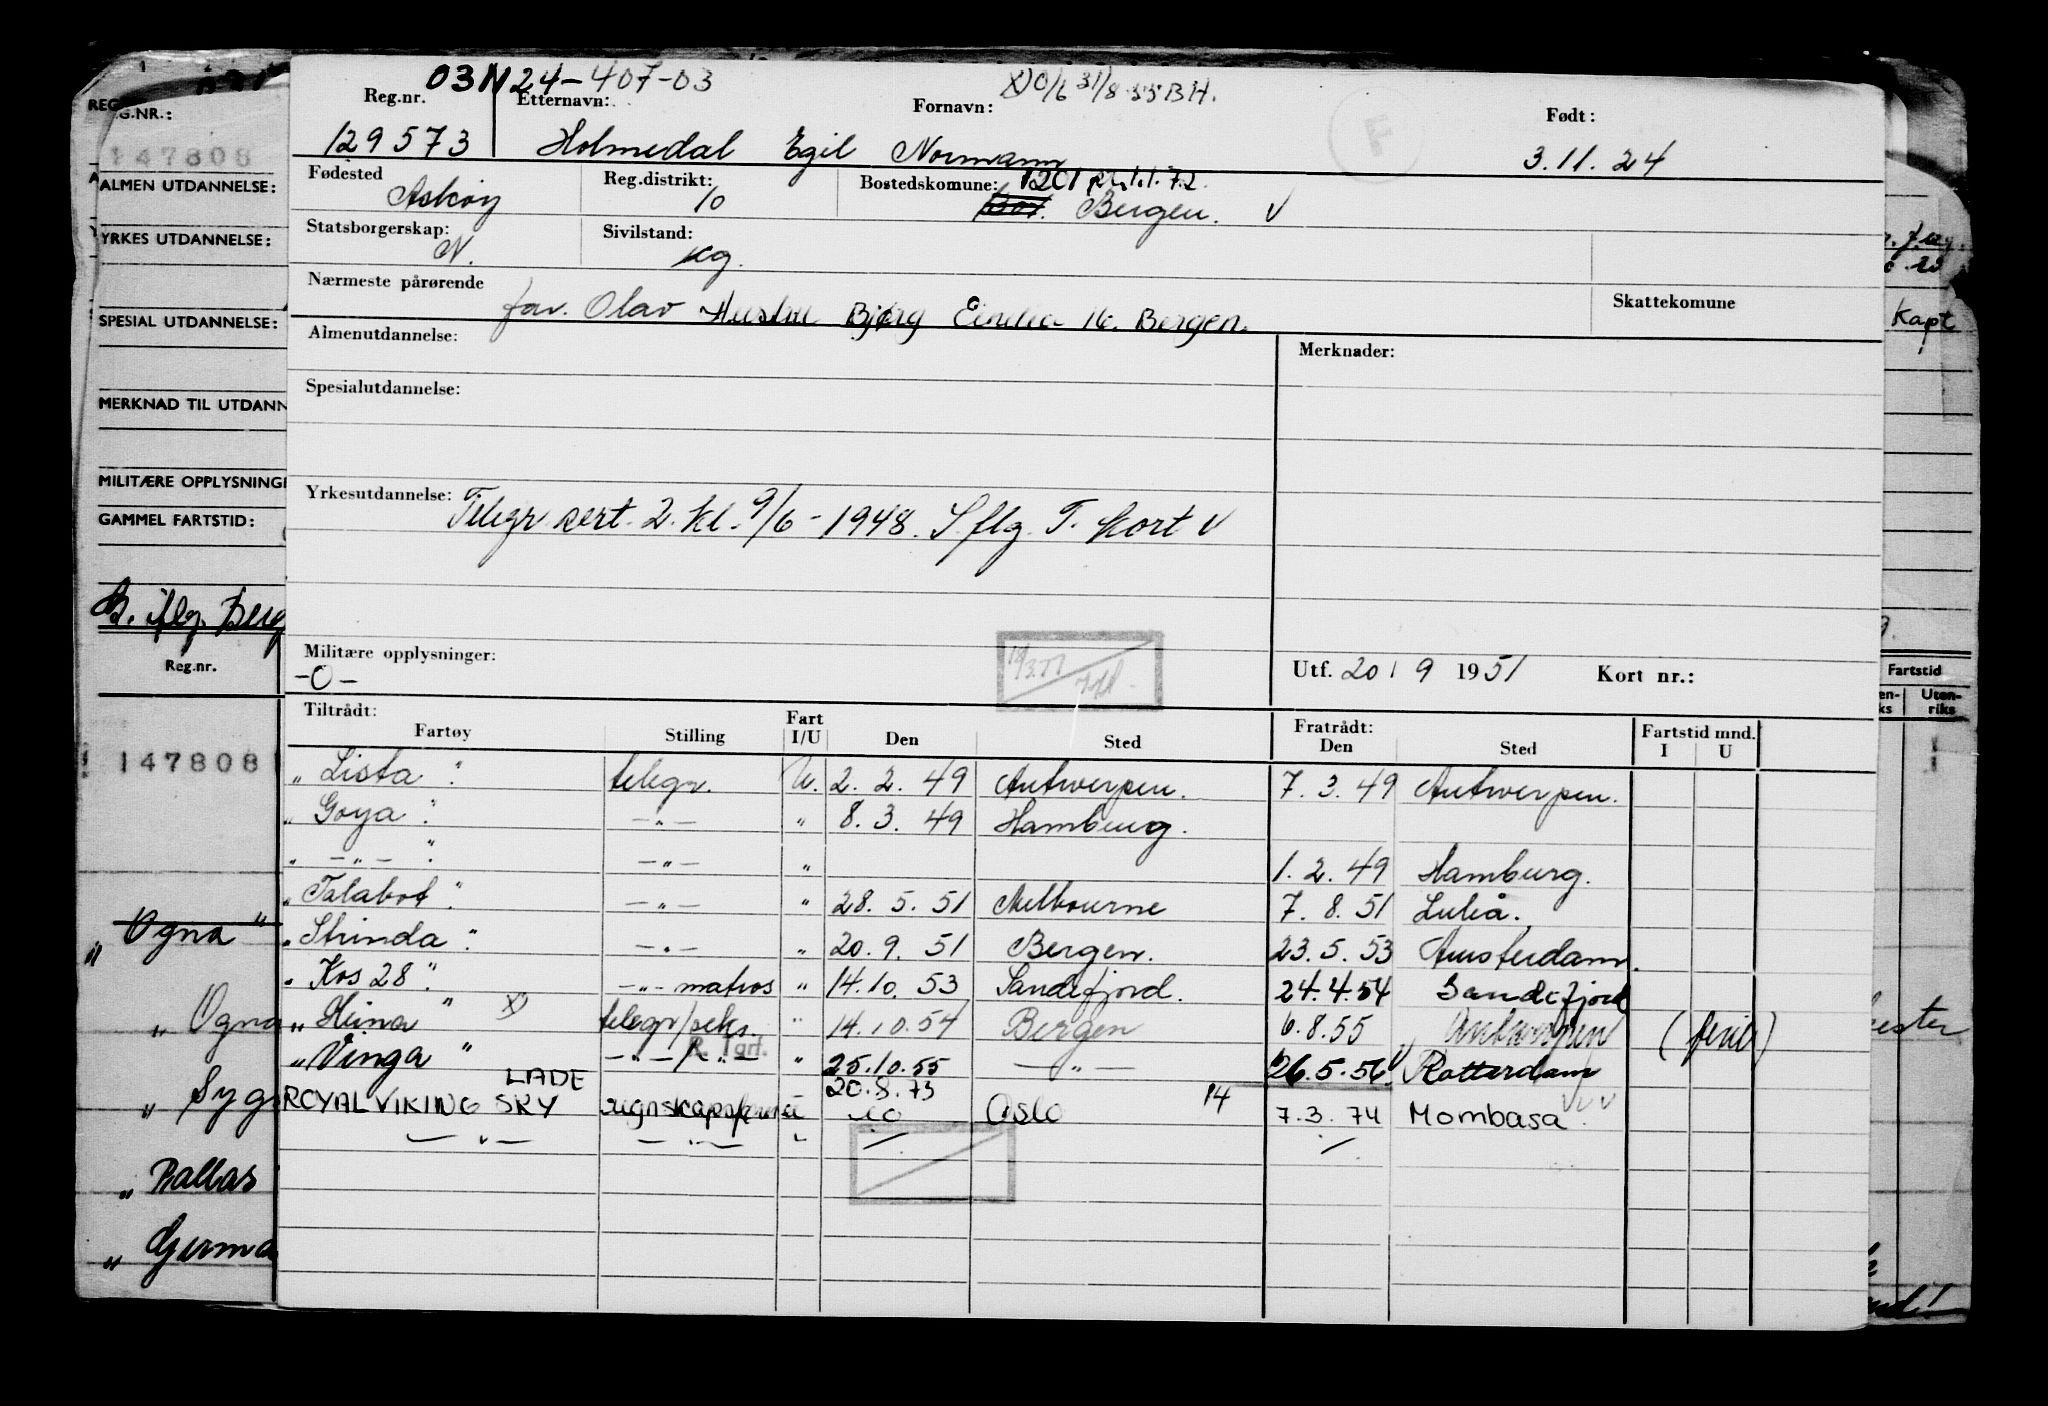 03N24-407-03
x) 0/6 31/8-55 B.H.
Reg.nr. Etternavn: Fornavn: Født:
129573 Holmedal Egil Normann 3.11.24
F
Fødested Reg.distrikt: Bostedskomune: 1201
Askøy 10 Bergen. V
Statsborgerskap: Sivilstand:
N. ug.
Nærmeste pårørende Skattekomune
far. Olav Hustru Bjørg 16. Bergen.
Almenutdannelse: Merknader:
Spesialutdannelse:
Yrkesutdannelse: Telegr. sert. 2. kl. 9/6-1948. S.flg. T. kort V
Militære opplysninger:
-0-
Utf. 20 / 9 1951 Kort nr.:
Tiltrådt: Fratrådt: Fartstid mnd.
Fartøy Stilling Fart I/U Den Sted Den Sted I U
"Lista" telegr. U. 2. 2. 49 Antwerpen. 7. 3. 49 Antwerpen.
"Goya" -"- " 8. 3. 49 Hamburg.
" -"- " -"- " 1. 2. 49 Hamburg.
"Talabot" -"- " 28. 5. 51 Melbourne 7. 8. 51 Luleå.
"Strinda" -"- " 20. 9. 51 Bergen. 23. 5. 53 Amsterdam.
"Kos 28" -"- matros " 14. 10. 53 Sandefjord. 24. 4. 54 Sandefjord
"Heina" x) telegr/seks. " 14. 10. 54 Bergen 6. 8. 55 Antwerpen (ferie)
"Vinga" -"-/-"- " 25. 10. 55 -"- 26. 5. 56 V Rotterdam
LADE 20. 8. 73
ROYAL VIKING SKY U Oslo 14 7. 3. 74 Mombasa
-"- -"- "
REG.NR.:
147808
ALMEN UTDANNELSE:
YRKES UTDANNELSE:
SPESIAL UTDANNELSE:
MERKNAD TIL UTDANN
MILITÆRE OPPLYSNING
GAMMEL FARTSTID:
Reg.nr.
147808
"Ogna"
"Ogna
"Syg
"Pallas
"Germa
Kapt
Fartstid
Uten-
riks